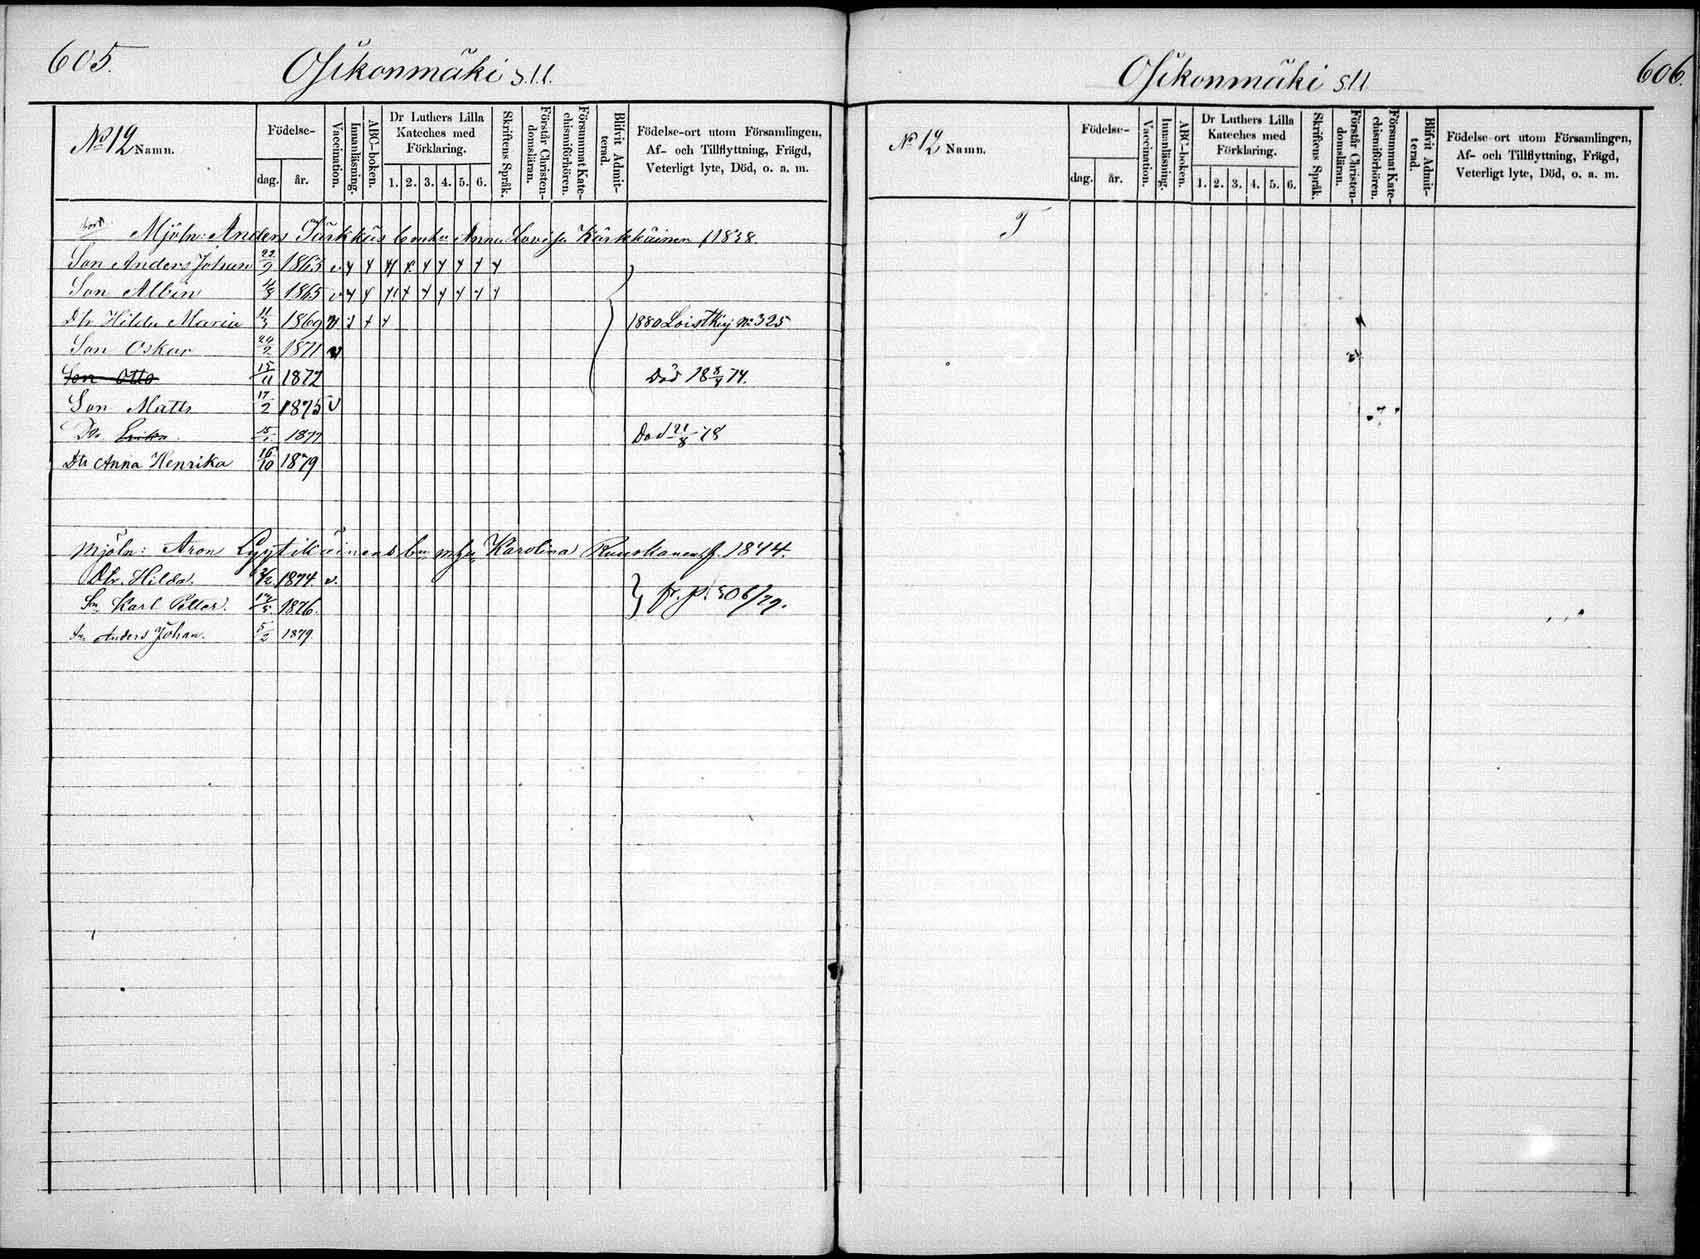 605.
Osikonmäki S.U.
No 12 Namn.
Födelse-
dag. år.
Vaccination.
Innanläsning.
ABC-boken.
Dr Luthers Lilla
Kateches med
Förklaring.
1. 2. 3. 4. 5. 6.
Skriftens Språk.
Förstår Christen-
domsläran.
Försummat Kate-
chismiförhören.
Blifvit Admit-
terad.
Födelse-ort utom Församlingen,
Af- och Tillflyttning, Frägd,
Veterligt lyte, Död, o. a. m.
Mjöln: Anders Anna Lovisa Kärkkäinen f 1838.
Son Anders Johan 22/9 1863 v
Son Albin 1865 v
Dtr Hilda Maria 11/3 1869 v 1880 No 325
Son Oskar 24/2 1871 v
Son Otto 15/11 1872 Död 18 8/4 74.
Son Matts 17/2 1875 v
Dtr Erika 1877 Död 21/8 78
Dtr Anna Henrika 16/10 1879
Mjöln: Aron Lyytikäinens Karolina Ruuskanen f. 1844.
Dtr. Hilda. 1874. v.
Sn Karl Petter. 1876. fr. p. 506/79.
Sn Anders Johan. 5/2 1879
606.
Osikonmäki S.U
No 12 Namn.
Födelse-
dag. år.
Vaccination.
Innanläsning.
ABC-boken.
Dr Luthers Lilla
Kateches med
Förklaring.
1. 2. 3. 4. 5. 6.
Skriftens Språk.
Förstår Christen-
domsläran.
Försummat Kate-
chismiförhören.
Blifvit Admit-
terad.
Födelse-ort utom Församlingen,
Af- och Tillflyttning, Frägd,
Veterligt lyte, Död, o. a. m.